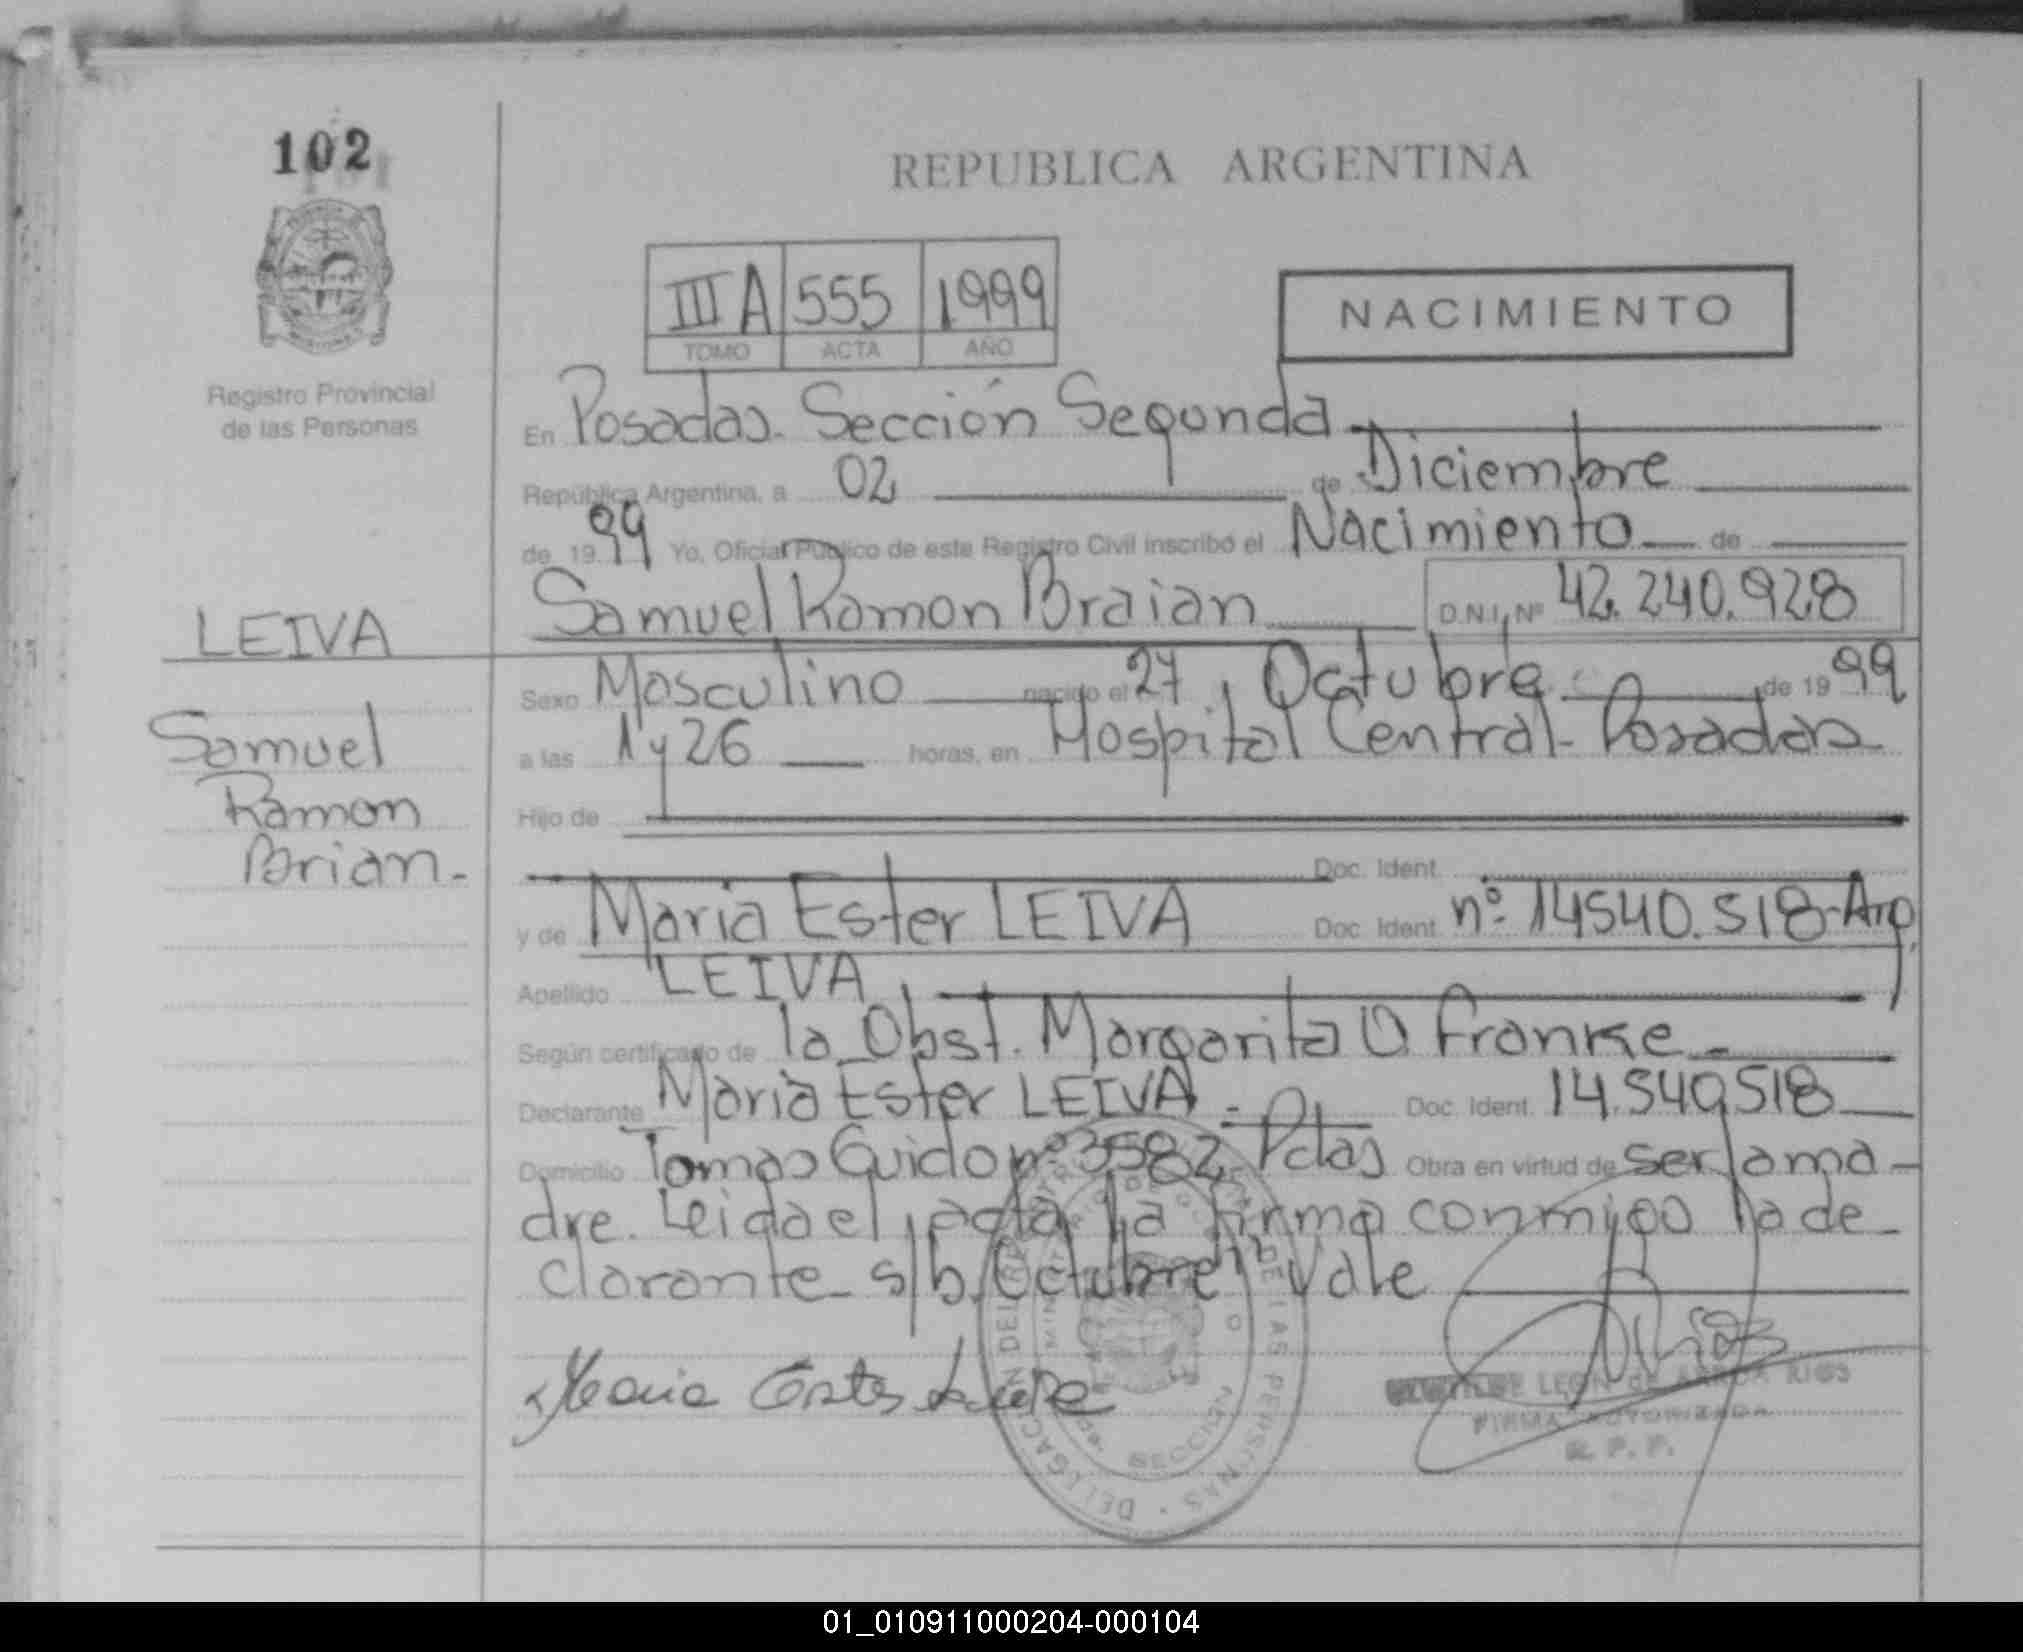 102
REPUBLICA ARGENTINA
III A 555 1999
TOMO ACTA AÑO
NACIMIENTO
Registro Provincial
de las Personas
En Posadas. Sección Segunda
República Argentina, a 02 de Diciembre
de 1999 Yo, Oficial Público de este Registro Civil inscribo el Nacimiento de
Samuel Ramon Braian D.N.I. Nº 42.240.928
LEIVA
Samuel
Ramon
Brian.-
Sexo Masculino nacido el 27, Octubre de 1999
a las 1 y 26 horas, en Hospital Central- Posadas
Hijo de
Doc. Ident.
y de Maria Ester LEIVA Doc. Ident. nº 14540.518-Arg.
Apellido LEIVA
Según certificado de la Obst. Margarita O. Franke.-
Declarante Maria Ester LEIVA.- Doc. Ident. 14.540518
Domicilio Tomas Guido nº 3582 Pdas Obra en virtud de ser la ma-
dre. Leida el acta la firma conmigo la de-
clarante s/b. "Octubre" Vale
Maria Ester
LEON de RIOS
FIRMA AUTORIZADA
R. P. P.
SECCION
01_010911000204-000104